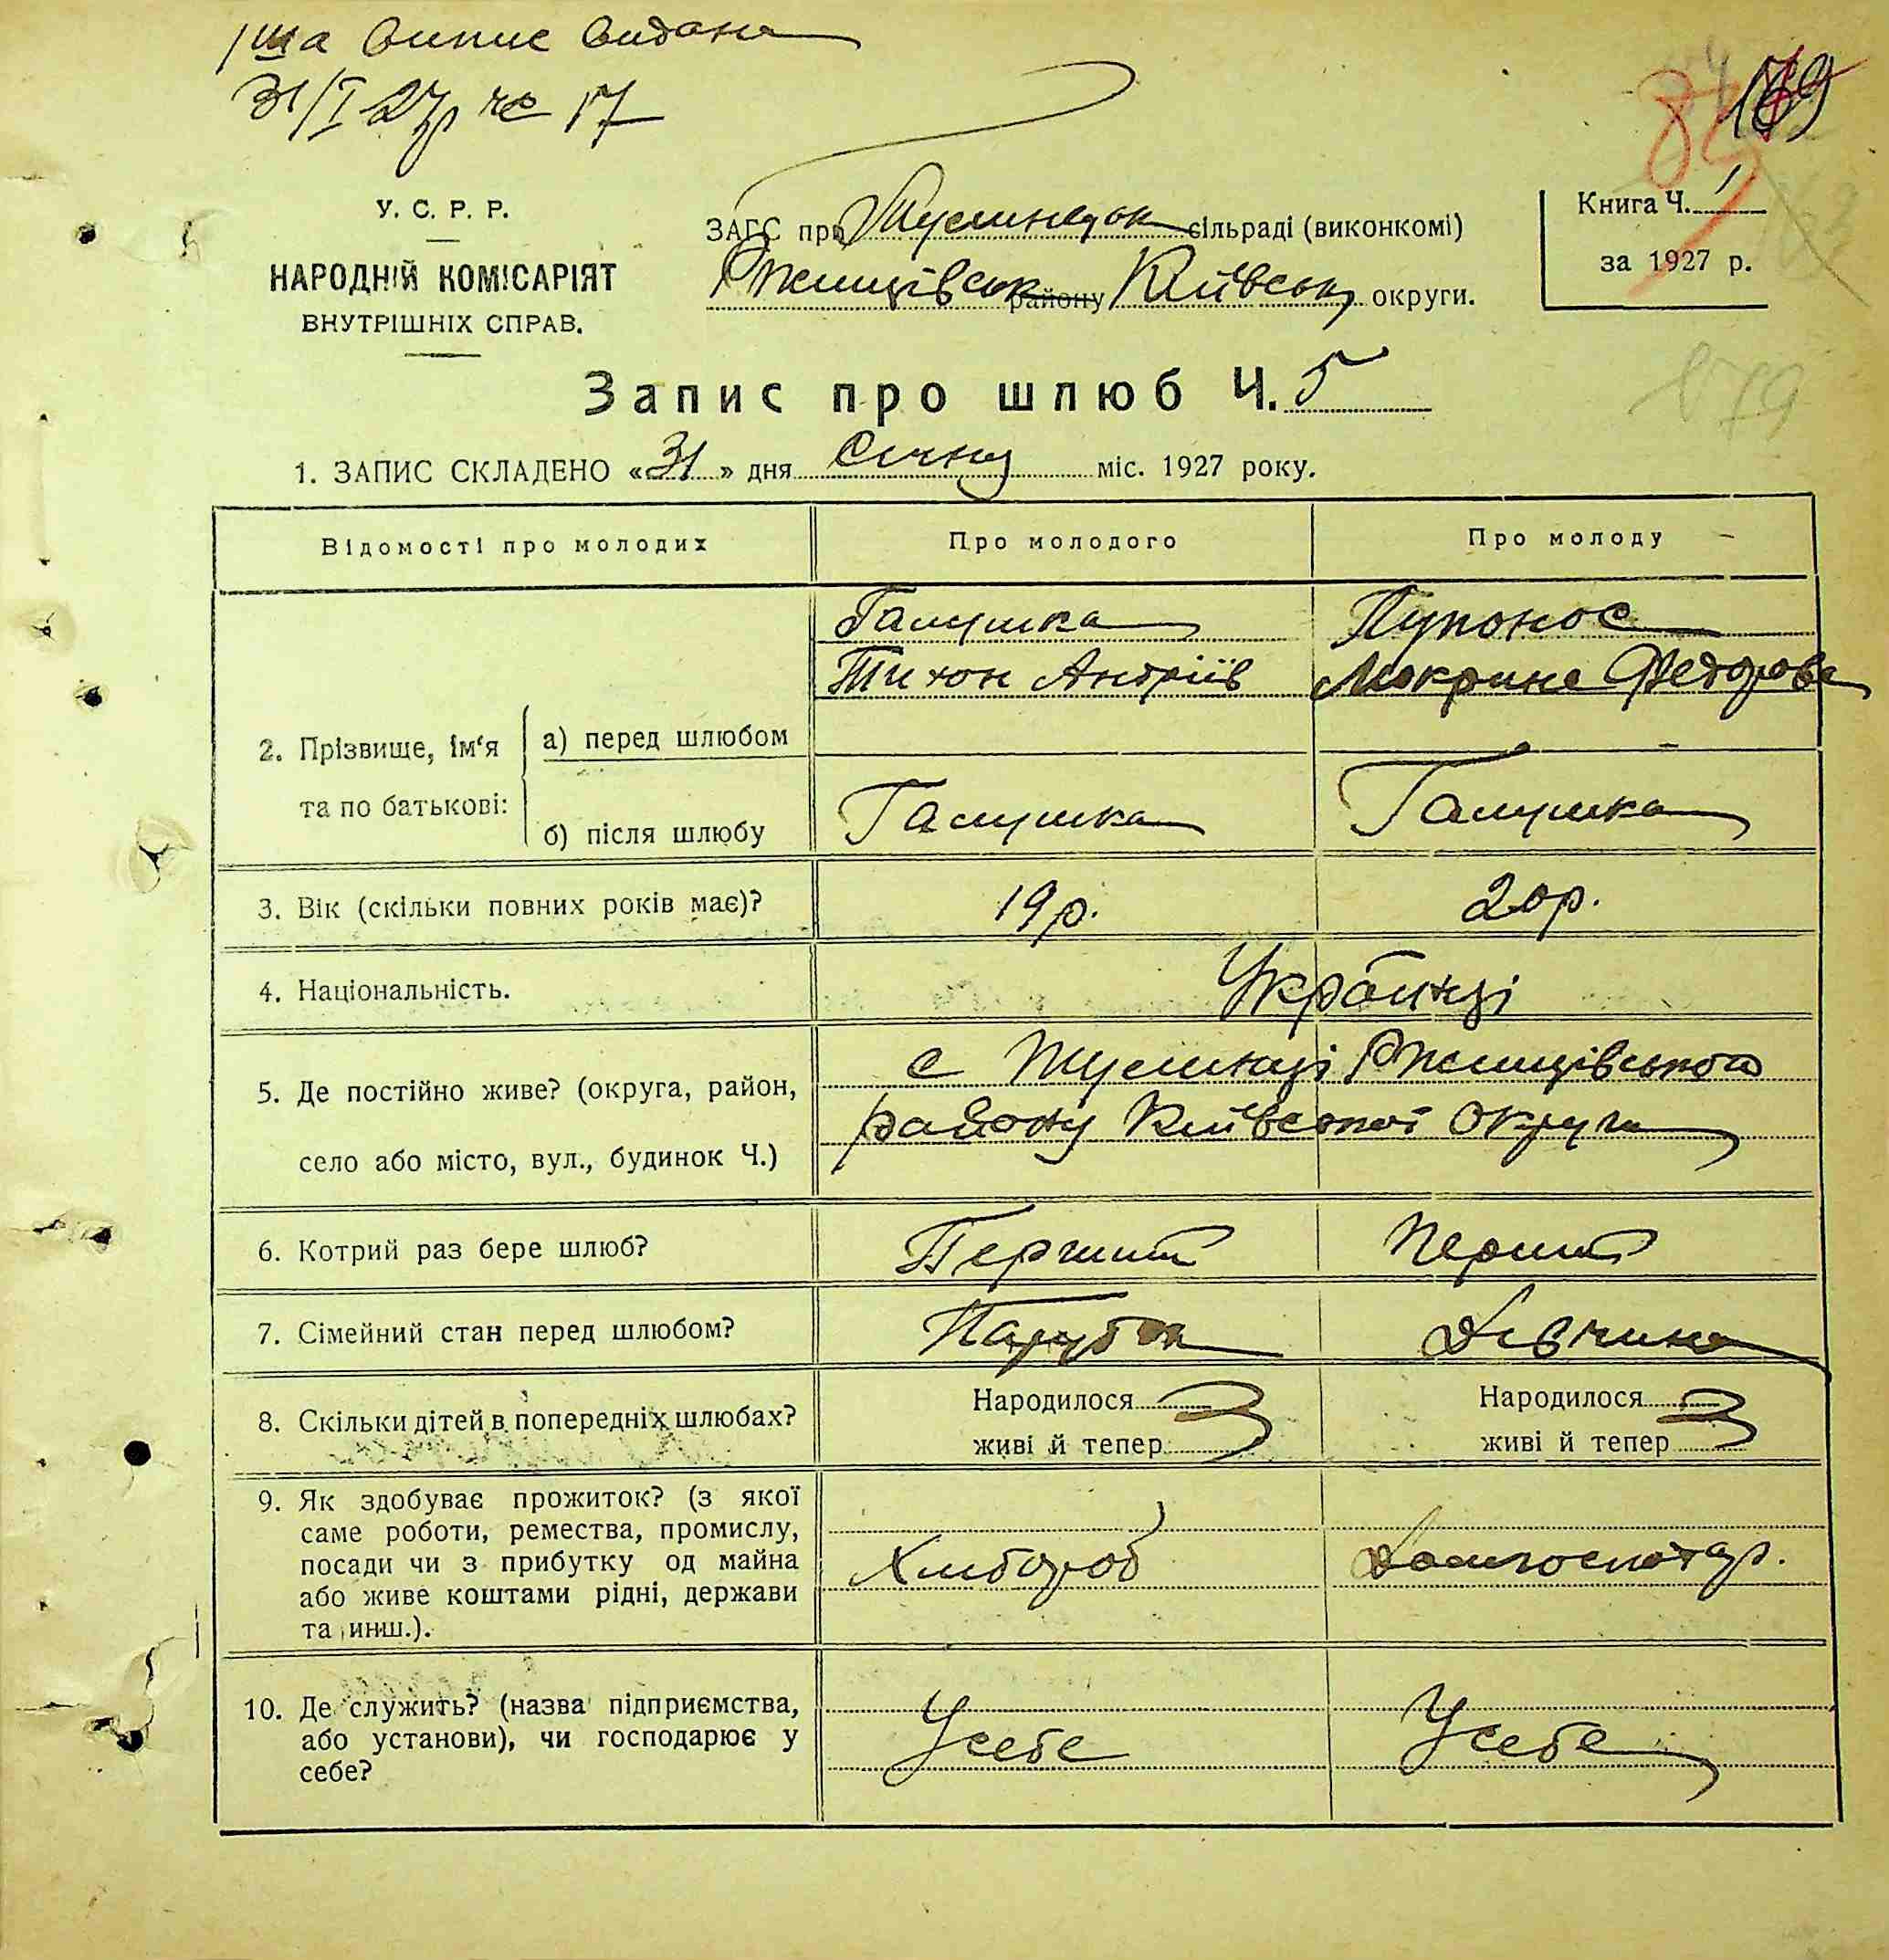 1ша випис видана
31/I 27р № 17
169
84
У. С. Р. Р.
НАРОДНІЙ КОМІСАРІЯТ
ВНУТРІШНІХ СПРАВ.
ЗАГС при сільраді (виконкомі)
Ржищівськ району Київськ округи.
Книга Ч. 1
за 1927 р.
Запис про шлюб Ч. 5
879
1. ЗАПИС СКЛАДЕНО «31» дня Січня міс. 1927 року.
Відомості про молодих
Про молодого
Про молоду
2. Прізвище, ім'я та по батькові:
а) перед шлюбом
Галушка
Тихон Андріїв
Пупонос
Мокрина Федорова
б) після шлюбу
Галушка
Галушка
3. Вік (скільки повних років має)?
19 р.
20 р.
4. Національність.
Українці
5. Де постійно живе? (округа, район,
село або місто, вул., будинок Ч.)
с Ржищівського
району Київської Округи
6. Котрий раз бере шлюб?
Перший
Перший
7. Сімейний стан перед шлюбом?
Парубок
Дівчина
8. Скільки дітей в попередніх шлюбах?
Народилося
живі й тепер
Народилося
живі й тепер
9. Як здобуває прожиток? (з якої
саме роботи, ремества, промислу,
посади чи з прибутку од майна
або живе коштами рідні, держави
та инш.).
Хлібороб
Домгосподар.
10. Де служить? (назва підприємства,
або установи), чи господарює у
себе?
У себе
У себе